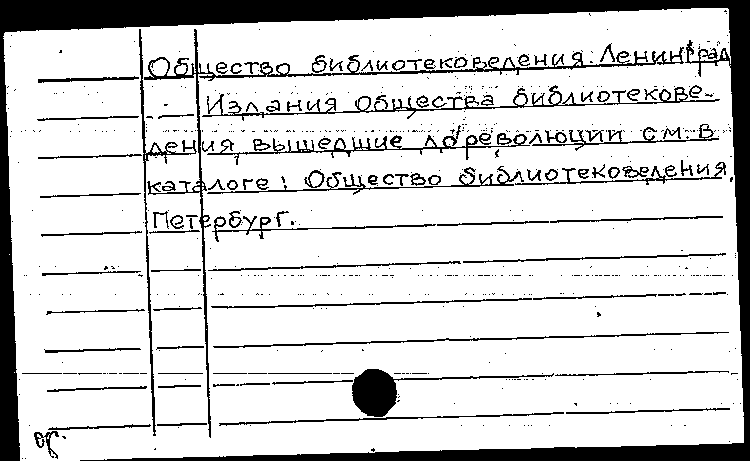 Общество библиотековедения. Ленинград
Издания Общества библиотекове-
дения, вышедшие до революции см. в
каталоге: Общество библиотековедения,
Петербург.